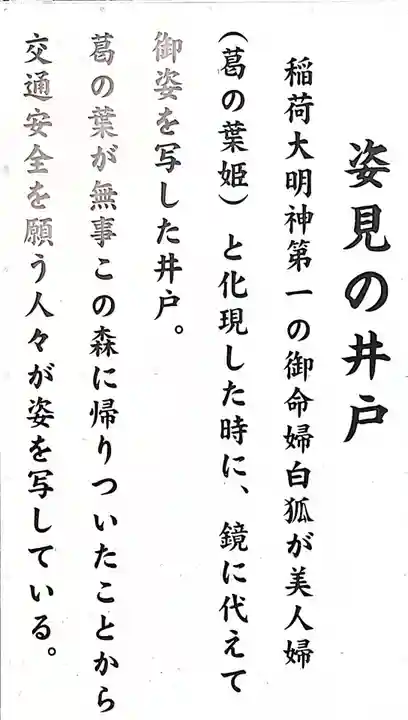 姿見の井戸
稲荷大明神第一の御命婦白狐が美人婦
(葛の葉姫)と化現した時に、鏡に代えて
御姿を写した井戸。
葛の葉が無事この森に帰りついたことから
交通安全を願う人々が姿を写している。